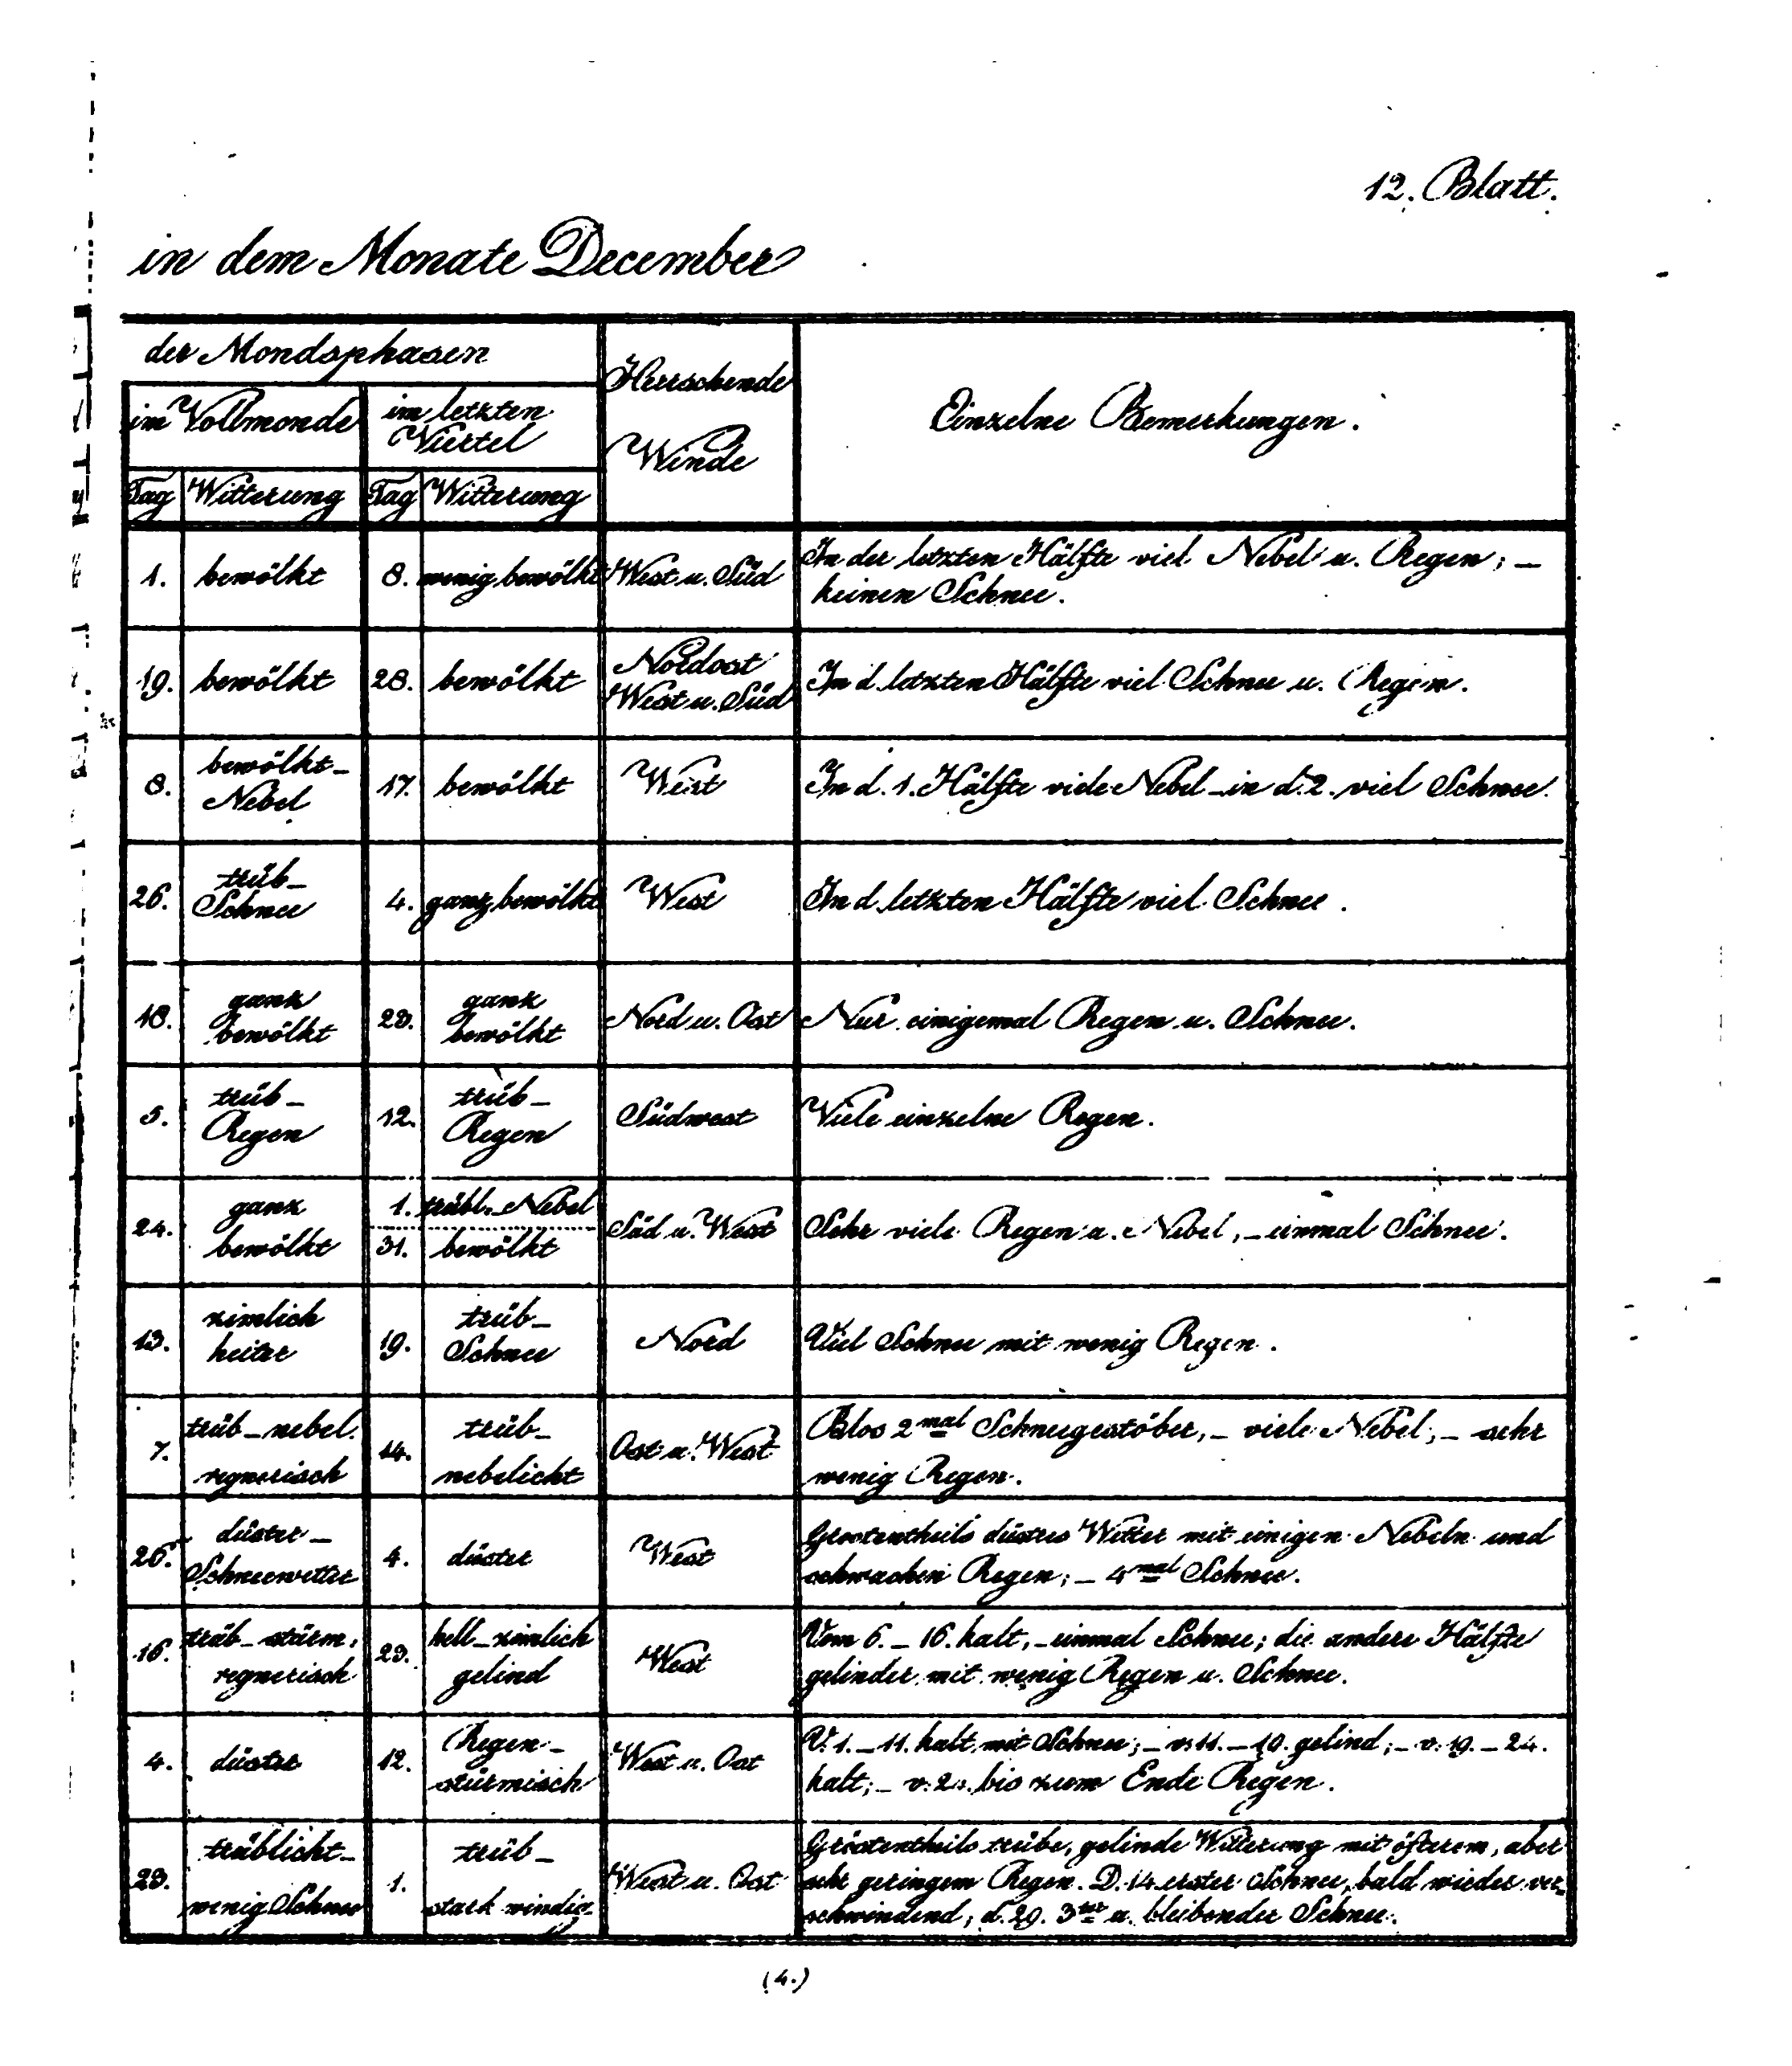 12. Blatt.
in dem Monate December
der Mondsphasen
Herrschende
Winde
Einzelne Bemerkungen.
im Vollmonde
im letzten
Viertel
Tag Witterung Tag Witterung
1. bewölkt 8. wenig bewölkt West u. Süd In der letzten Hälfte viel Nebel u. Regen; –
keinen Schnee.
19. bewölkt 28. bewölkt Nordost
West u. Süd In d. letzten Hälfte viel Schnee u. Regen.
8. bewölkt –
Nebel 17. bewölkt West In d. 1. Hälfte viele Nebel – in d. 2. viel Schnee.
26. trüb –
Schnee 4. ganz bewölkt West In d. letzten Hälfte viel Schnee.
18. ganz
bewölkt 23. ganz
bewölkt Nord u. Ost Nur einigemal Regen u. Schnee.
5. trüb –
Regen 12. trüb –
Regen Südwest Viele einzelne Regen.
24. ganz
bewölkt 1. trübl. Nebel
31. bewölkt Süd u. West Sehr viele Regen u. Nebel, – einmal Schnee.
13. zimlich
heiter 19. trüb –
Schnee Nord Viel Schnee mit wenig Regen.
7. trüb – nebel.
regnerisch 14. trüb –
nebelicht Ost u. West Blos 2mal Schneegestöber, – viele Nebel; – sehr
wenig Regen.
26. düster –
Schneewetter 4. düster West Grostentheils düstres Wetter mit einigen Nebeln und
schwachen Regen; – 4mal Schnee.
16. trüb – stürm.
regnerisch 23. hell – zimlich
gelind West Vom 6. – 16. kalt, – einmal Schnee; die andere Hälfte
gelinder mit wenig Regen u. Schnee.
4. düster 12. Regen –
stürmisch West u. Ost V. 1. – 11. kalt, mit Schnee; – v. 11. – 19. gelind; – v. 19. – 24.
kalt; – v. bis zum Ende Regen.
23. trüblicht –
wenig Schnee 1. trüb –
stark windig West u. Ost Gröstentheils trübe, gelinde Witterung mit öfterem, aber
sehr geringem Regen. D. 14. erster Schnee, bald wieder ver-
schwindend; d. 29. 3ter u. bleibender Schnee.
(4.)